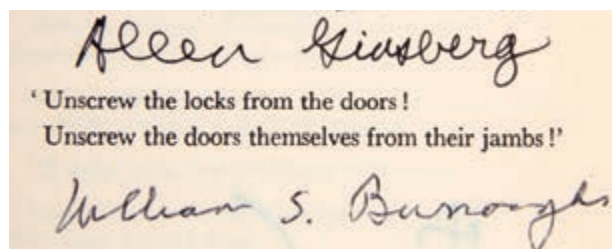 Allen Ginsberg
‘Unscrew the locks from the doors!
Unscrew the doors themselves from their jambs!’
William S. Burroughs